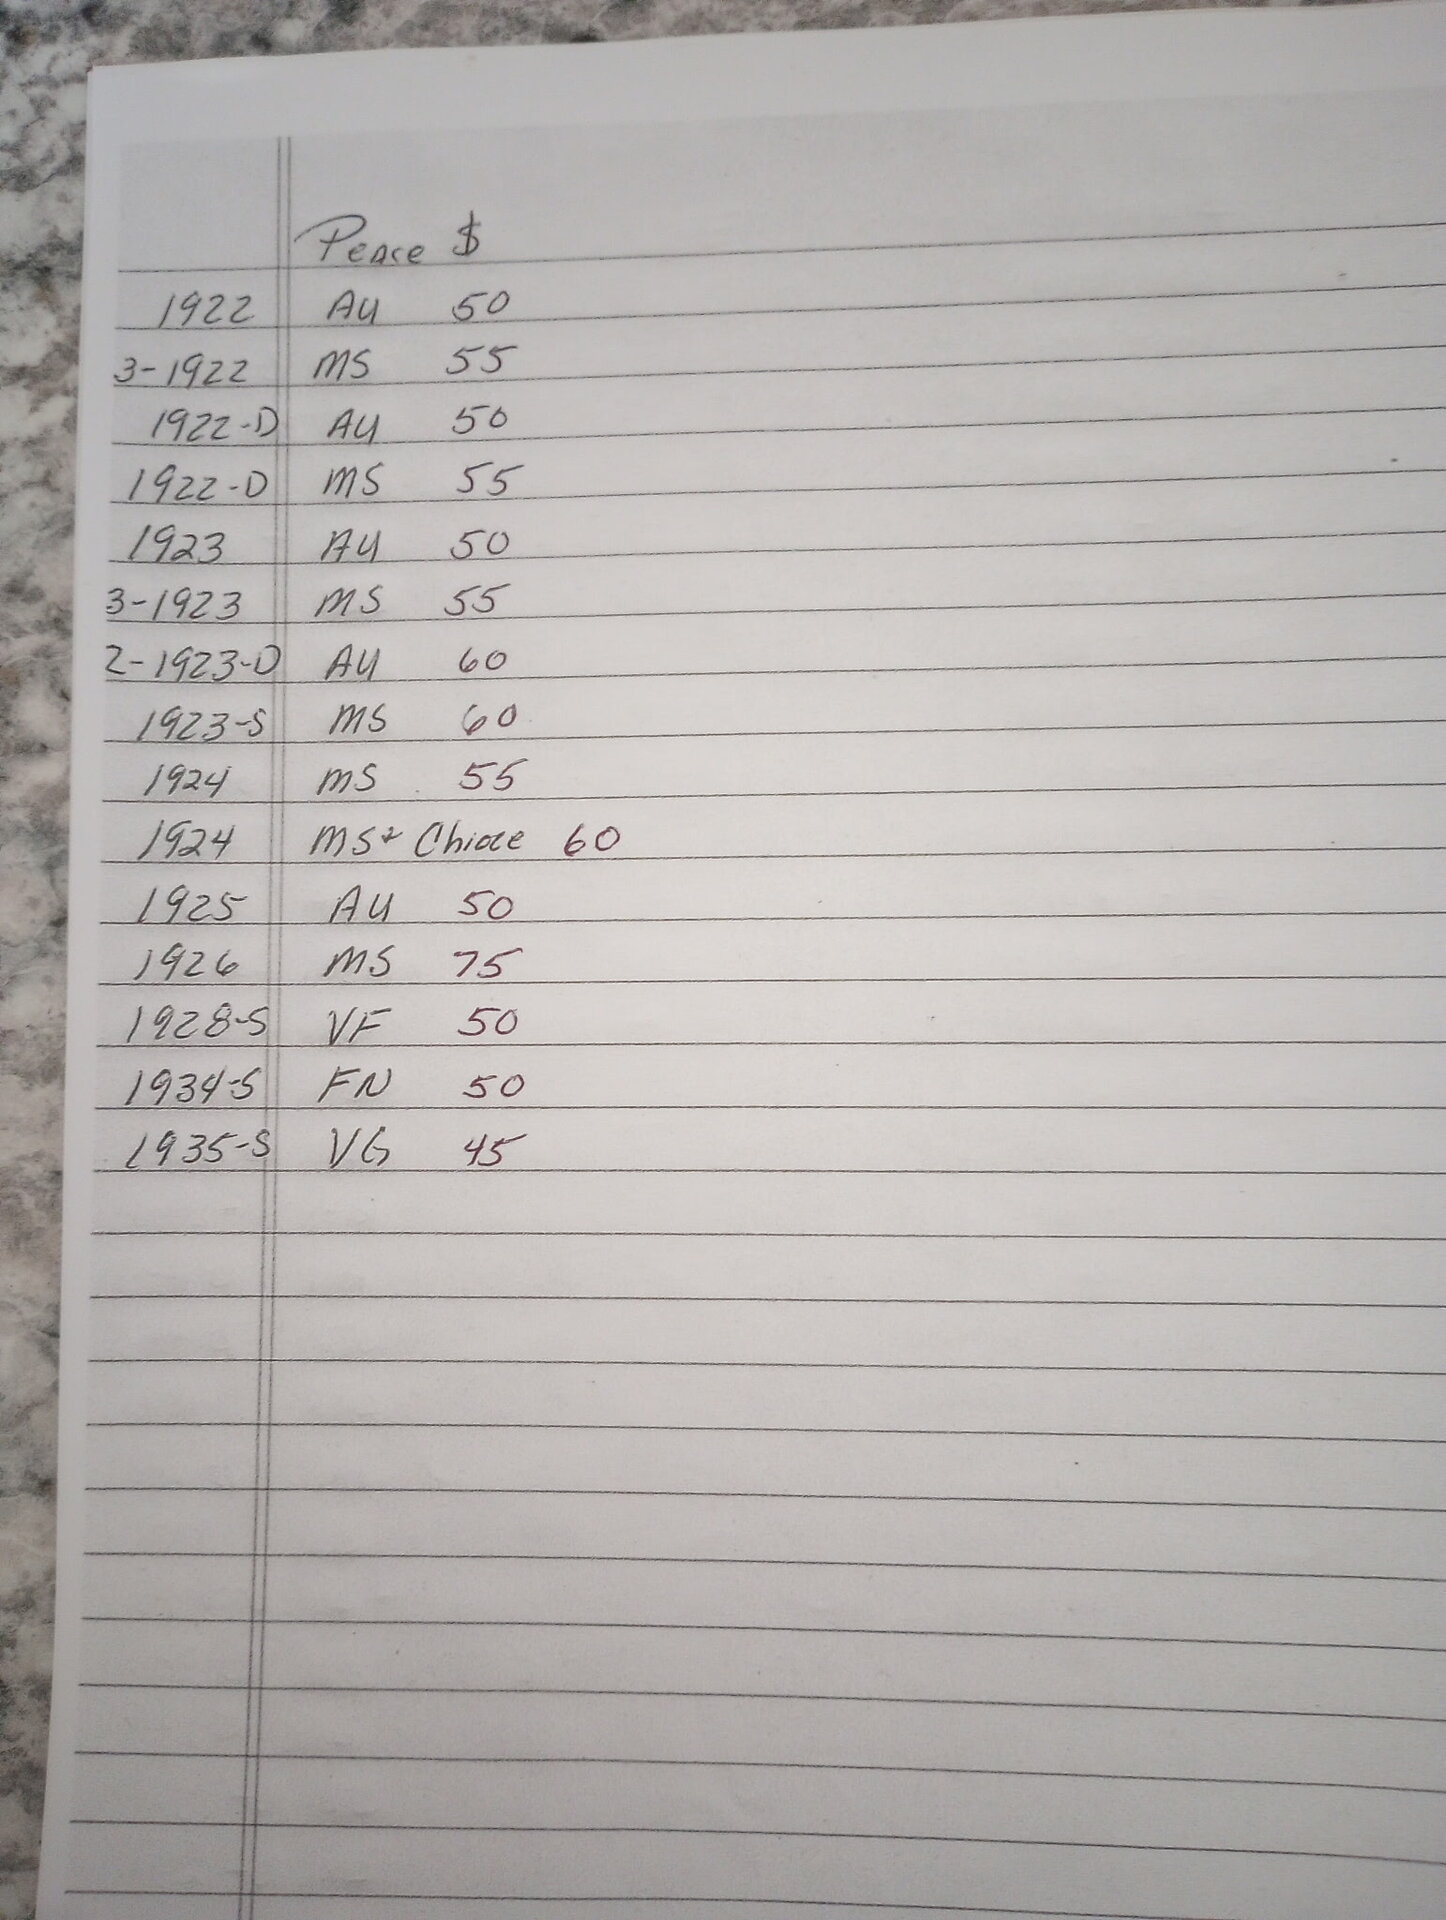 Peace $
1922 AU 50
3-1922 MS 55
1922-D AU 50
1922-D MS 55
1923 AU 50
3-1923 MS 55
2-1923-D AU 60
1923-S MS 60
1924 MS 55
1924 MS+ Chioce 60
1925 AU 50
1926 MS 75
1928-S VF 50
1934-S FN 50
1935-S VG 45